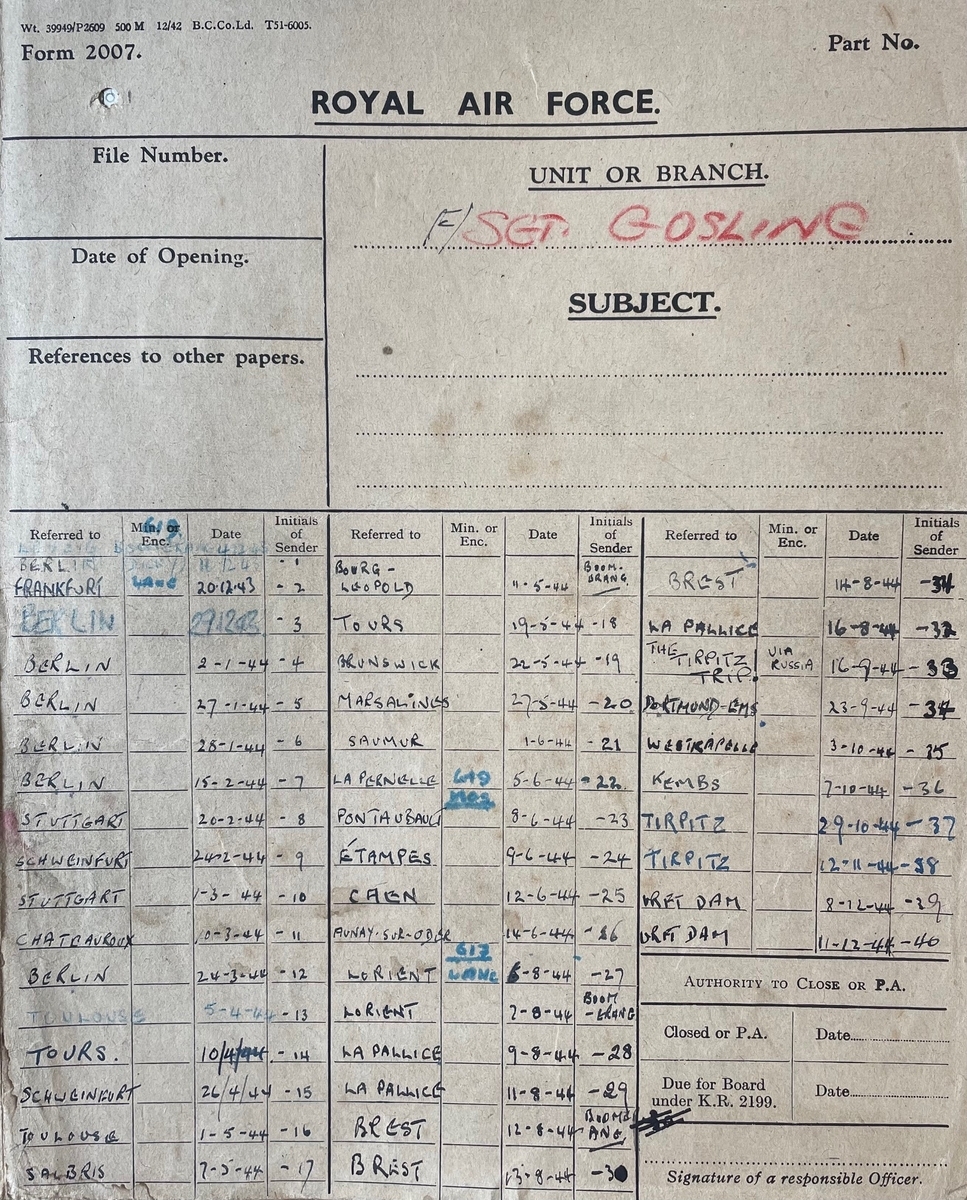 Wt. 39949/P2609 500 M 12/42 B.C.Co.Ld. T51-6005.
Form 2007.
Part No.
ROYAL AIR FORCE.
File Number.
UNIT OR BRANCH.
F/SGT. GOSLING
Date of Opening.
SUBJECT.
References to other papers.
Referred to Min. or Enc. Date Initials of Sender
619
BERLIN - 1
FRANKFURT LANC 20.12.43 - 2
BERLIN 29.12.43 - 3
BERLIN 2-1-44 - 4
BERLIN 27-1-44 - 5
BERLIN 28-1-44 - 6
BERLIN 15-2-44 - 7
STUTTGART 20-2-44 - 8
SCHWEINFURT 24-2-44 - 9
STUTTGART 1-3-44 - 10
CHATEAUROUX 10-3-44 - 11
BERLIN 24-3-44 - 12
TOULOUSE 5-4-44 - 13
TOURS. 10/4/44 - 14
SCHWEINFURT 26/4/44 - 15
TOULOUSE 1-5-44 - 16
SALBRIS 7-5-44 - 17
Referred to Min. or Enc. Date Initials of Sender
BOURG-
LEOPOLD 11-5-44 BOOM-
ERANG
TOURS 19-5-44 - 18
BRUNSWICK 22-5-44 - 19
MARSALINES 27-5-44 - 20
SAUMUR 1-6-44 - 21
LA PERNELLE 619 5-6-44 - 22
PONTAUBAULT 8-6-44 - 23
ÉTAMPES 9-6-44 - 24
CAEN 12-6-44 - 25
AUNAY-SUR-ODER 14-6-44 - 26
617
LORIENT LANC 6-8-44 - 27
LORIENT 7-8-44 BOOM
-ERANG
LA PALLICE 9-8-44 - 28
LA PALLICE 11-8-44 - 29
BREST 12-8-44
BREST 13-8-44 - 30
Referred to Min. or Enc. Date Initials of Sender
BREST 14-8-44
LA PALLICE 16-8-44 - 32
THE TIRPITZ TRIP. VIA RUSSIA 16-9-44 - 33
DORTMUND-EMS 23-9-44 - 34
WESTKAPELLE 3-10-44 - 35
KEMBS 7-10-44 - 36
TIRPITZ 29-10-44 - 37
TIRPITZ 12-11-44 - 38
URFT DAM 8-12-44 - 39
URFT DAM 11-12-44 - 40
AUTHORITY TO CLOSE OR P.A.
Closed or P.A. Date
Due for Board
under K.R. 2199. Date
Signature of a responsible Officer.